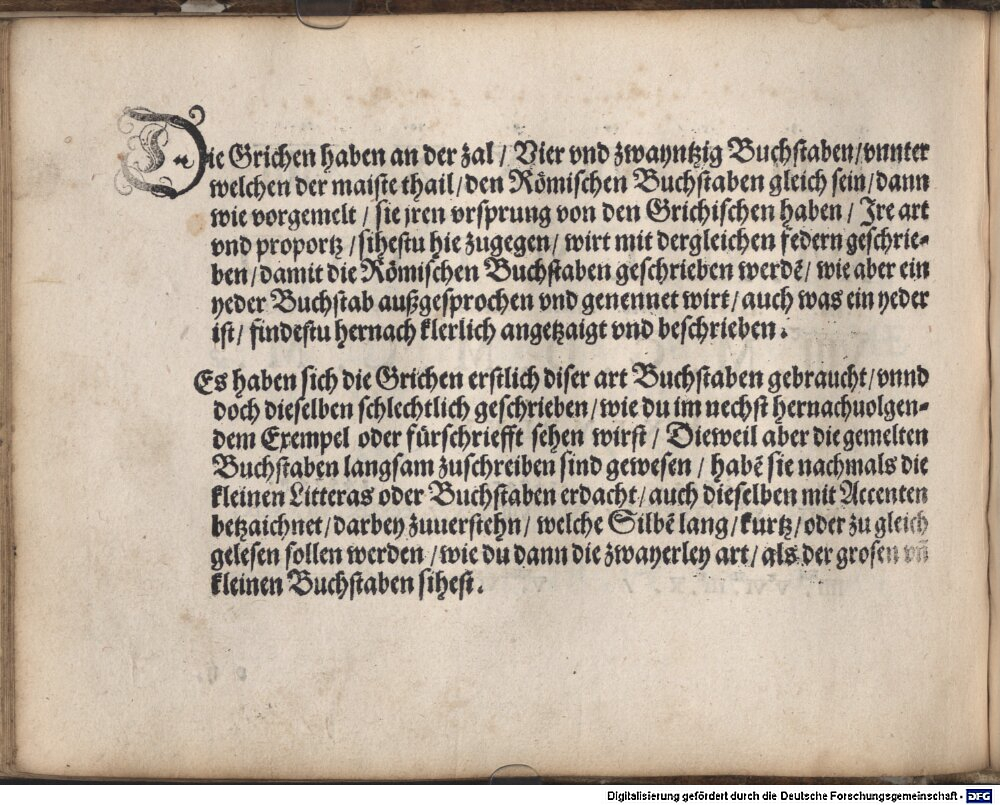 Die Grichen haben an der zal / Vier vnd zwayntzig Buchstaben/vnnter
welchen der maiste thail/den Römischen Buchstaben gleich sein/dann
wie vorgemelt / sie jren vrsprung von den Grichischen haben / Jre art
vnd proportz /sihestu hie zugegen/ wirt mit dergleichen federn geschrie-
ben/damit die Römischen Buchstaben geschrieben werdē/ wie aber ein
yeder Buchstab außgesprochen vnd genennet wirt/auch was ein yeder
ist/ findestu hernach klerlich angetzaigt vnd beschrieben.
Es haben sich die Grichen erstlich diser art Buchstaben gebraucht/vnnd
doch dieselben schlechtlich geschrieben/wie du im nechst hernachuolgen-
dem Exempel oder fürschriefft sehen wirst / Dieweil aber die gemelten
Buchstaben langsam zuschreiben sind gewesen / habē sie nachmals die
kleinen Litteras oder Buchstaben erdacht/auch dieselben mit Accenten
betzaichnet/darbey zuuerstehn/ welche Silbē lang/kurtz/oder zu gleich
gelesen sollen werden /wie du dann die zwayerley art/als der grosen vñ
kleinen Buchstaben sihest.
Digitalisierung gefördert durch die Deutsche Forschungsgemeinschaft - DFG